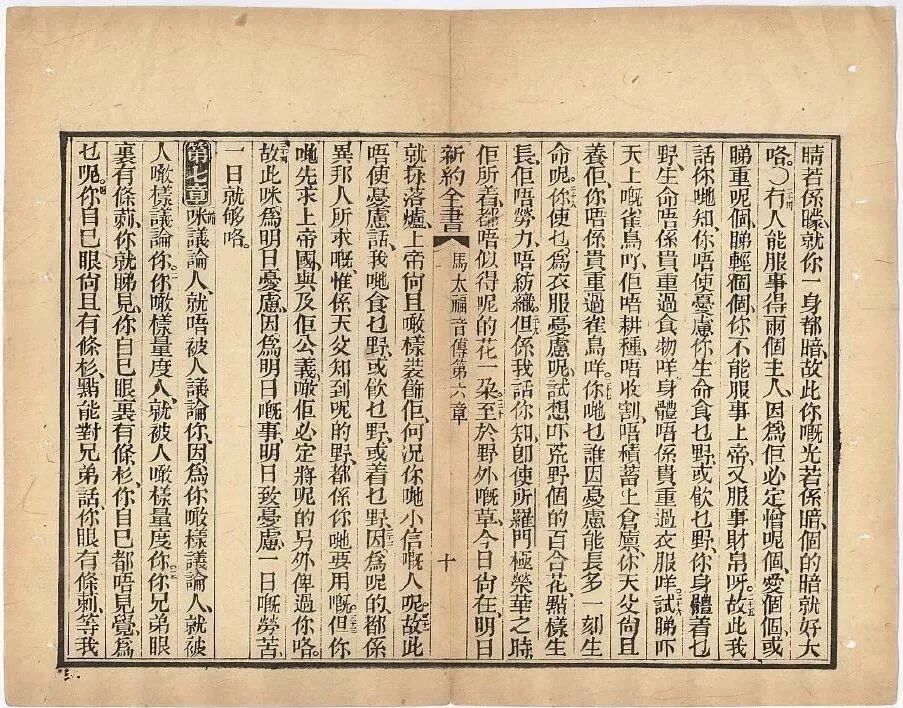 睛若係矇、就你一身都暗、故此你嘅光若係暗、個的暗就好大
咯。○二十四冇人能服事得兩個主人、因為佢必定憎呢個、愛個個、或
睇重呢個、睇輕個個、你不能服事上帝、又服事財帛呀。二十五故此我
話你哋知、你唔使憂慮你生命食乜野、或飲乜野、你身體着乜
野、生命唔係貴重過食物咩、身體唔係貴重過衣服咩。二十六試睇吓
天上嘅雀鳥吖、佢唔耕種、唔收割、唔積蓄上倉廪、你天父尙且
養佢、你唔係貴重過雀鳥咩。二十七你哋乜誰因憂慮能長多一刻生
命呢。二十八你使乜為衣服憂慮呢、試想吓荒野個的百合花、點樣生
長、佢唔勞力、唔紡織。二十九但係我話你知、卽使所羅門極榮華之時、
佢所着都唔似得呢的花一朶。三十至於野外嘅草、今日尙在、明日
新約全書 馬太福音傳第六章 十
就掭落爐、上帝尙且噉樣裝飾佢、何況你哋小信嘅人呢。三十一故此
唔使憂慮話、我哋食乜野、或飲乜野、或着乜野。三十二因為呢的、都係
異邦人所求嘅、惟係天父知到呢的野、都係你哋要用嘅。三十三但你
哋先求上帝國、與及佢公義、噉佢必定將呢的另外俾過你咯。
三十四故此咪為明日憂慮、因為明日嘅事、明日致憂慮、一日嘅勞苦、
一日就够咯。
第七章 一節咪議論人、就唔被人議論你、因為你噉樣議論人、就被
人噉樣議論你。二你噉樣量度人、就被人噉樣量度你。三你兄弟眼
裏有條莿、你就睇見、你自己眼裏有條杉、你自己都唔見覺、為
乜呢。四你自己眼尙且有條杉、點能對兄弟話、你眼有條莿、等我